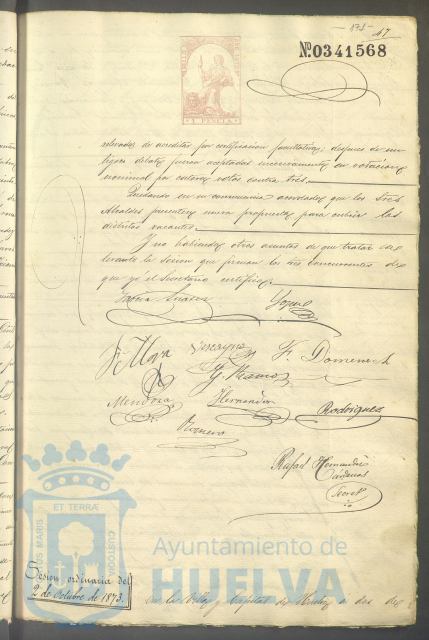 173
47
Nº0341568
1 PESETA
relevados de acreditar por certificacion facultativa; despues de un
ligero debate fueron aceptadas en votacion
nominal por catorce votos contra tres.
Quedando en su consecuencia acordado que los Sres
Alcaldes presenten nueva propuesta para cubrir las
distintas vacantes.
Y no habiendo otros asuntos de que tratar se
levantó la sesion que firman los Sres concurrentes de
que yo el Secretario certifico.
F. Mora
F. Domenech
J. Ramos
Mendoza
Hernandez
Rodriguez
Romero
Rafael Hernandez
Cárdenas
Secret.
ET TERRÆ
CUSTODIA
MARIS
Ayuntamiento de
HUELVA
Sesion ordinaria del
2 de Octubre de 1873.
En la Villa y Capital de Huelva a dos de